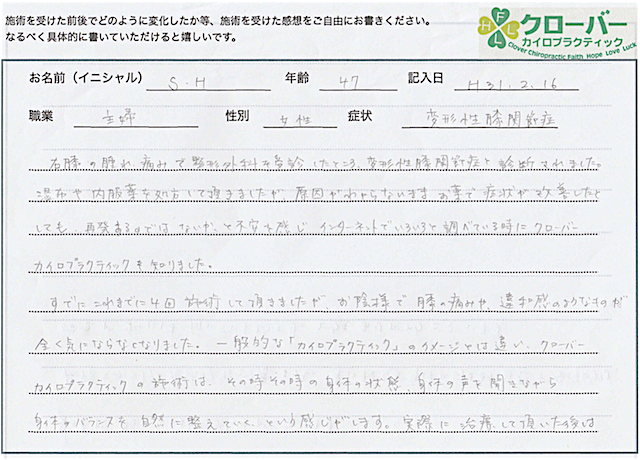 施術を受けた前後でどのように変化したか等、施術を受けた感想をご自由にお書きください。
なるべく具体的に書いていただけると嬉しいです。
HFLL クローバー
カイロプラクティック
Clover Chiropractic Faith Hope Love Luck
お名前（イニシャル） S.H 年齢 47 記入日 H31.2.16
職業 主婦 性別 女性 症状 変形性膝関節症
右膝の腫れ、痛みで整形外科を受診したところ、変形性膝関節症と診断されました。
湿布や内服薬を処方して頂きましたが、原因がわからないまま お薬で症状が改善したと
しても、再発するのではないか、と不安を感じ インターネットでいろいろと調べている時に クローバー
カイロプラクティックを知りました。
すでに これまでに4回 施術して頂きましたが、お陰様で 膝の痛みや、違和感のようなものが
全く気にならなくなりました。 一般的な「カイロプラクティック」のイメージとは違い、クローバー
カイロプラクティックの施術は、その時その時の身体の状態、身体の声を聞きながら
身体のバランスを 自然に整えていく、という感じがします。 実際に 治療して頂いた後は